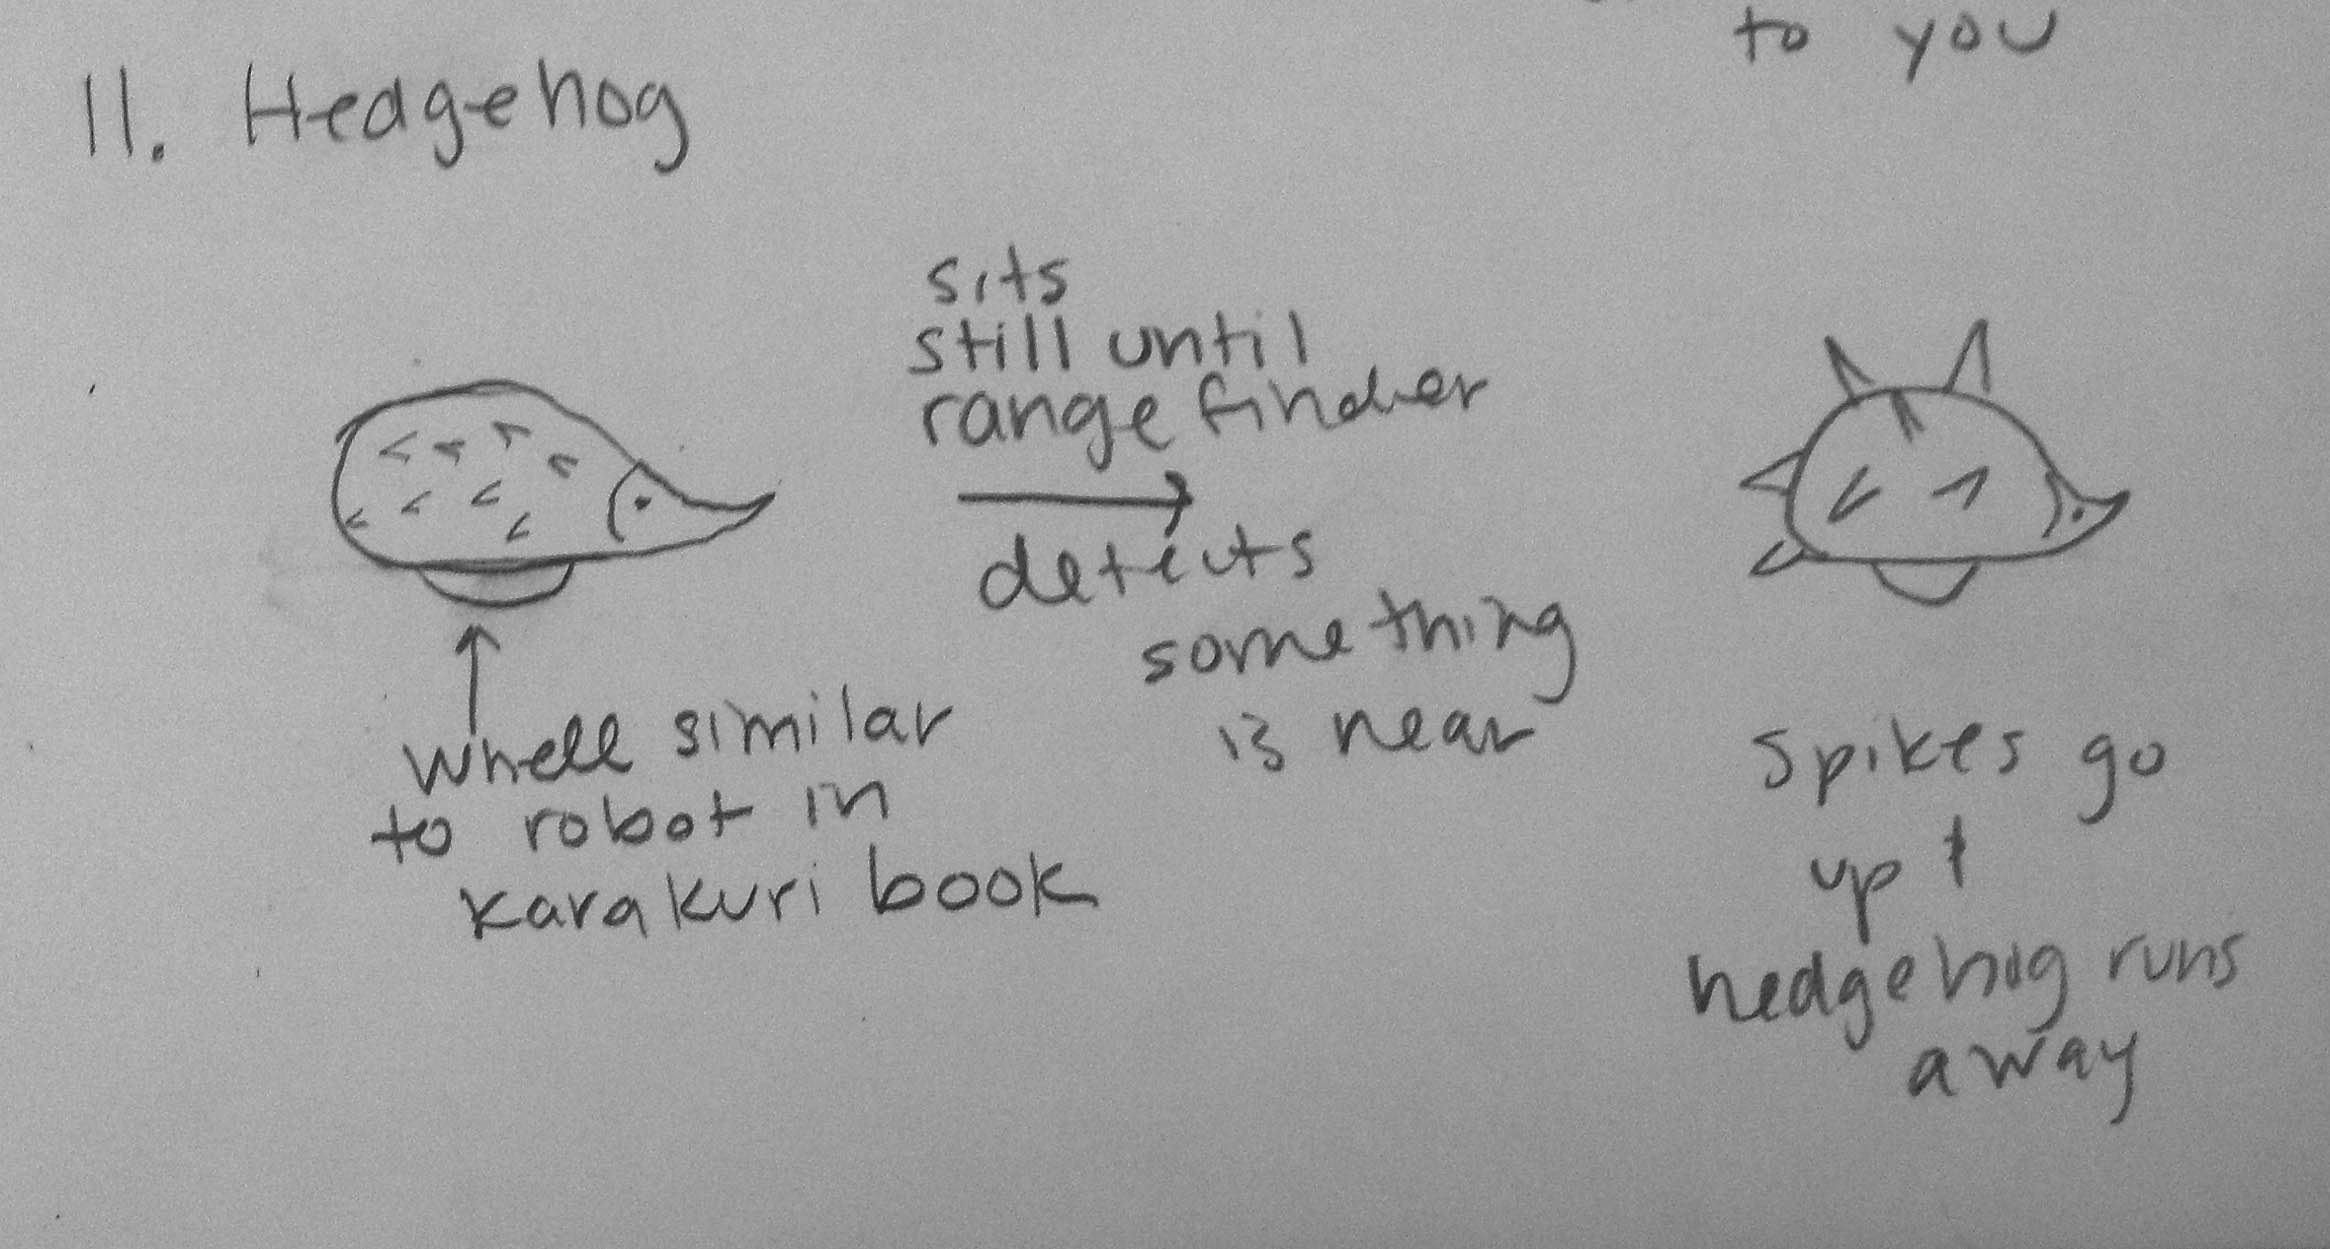 to you
11. Hedgehog
sits
still until
range finder
detects
something
is near
whell similar
to robot in
karakuri book
spikes go
up +
hedgehog runs
away